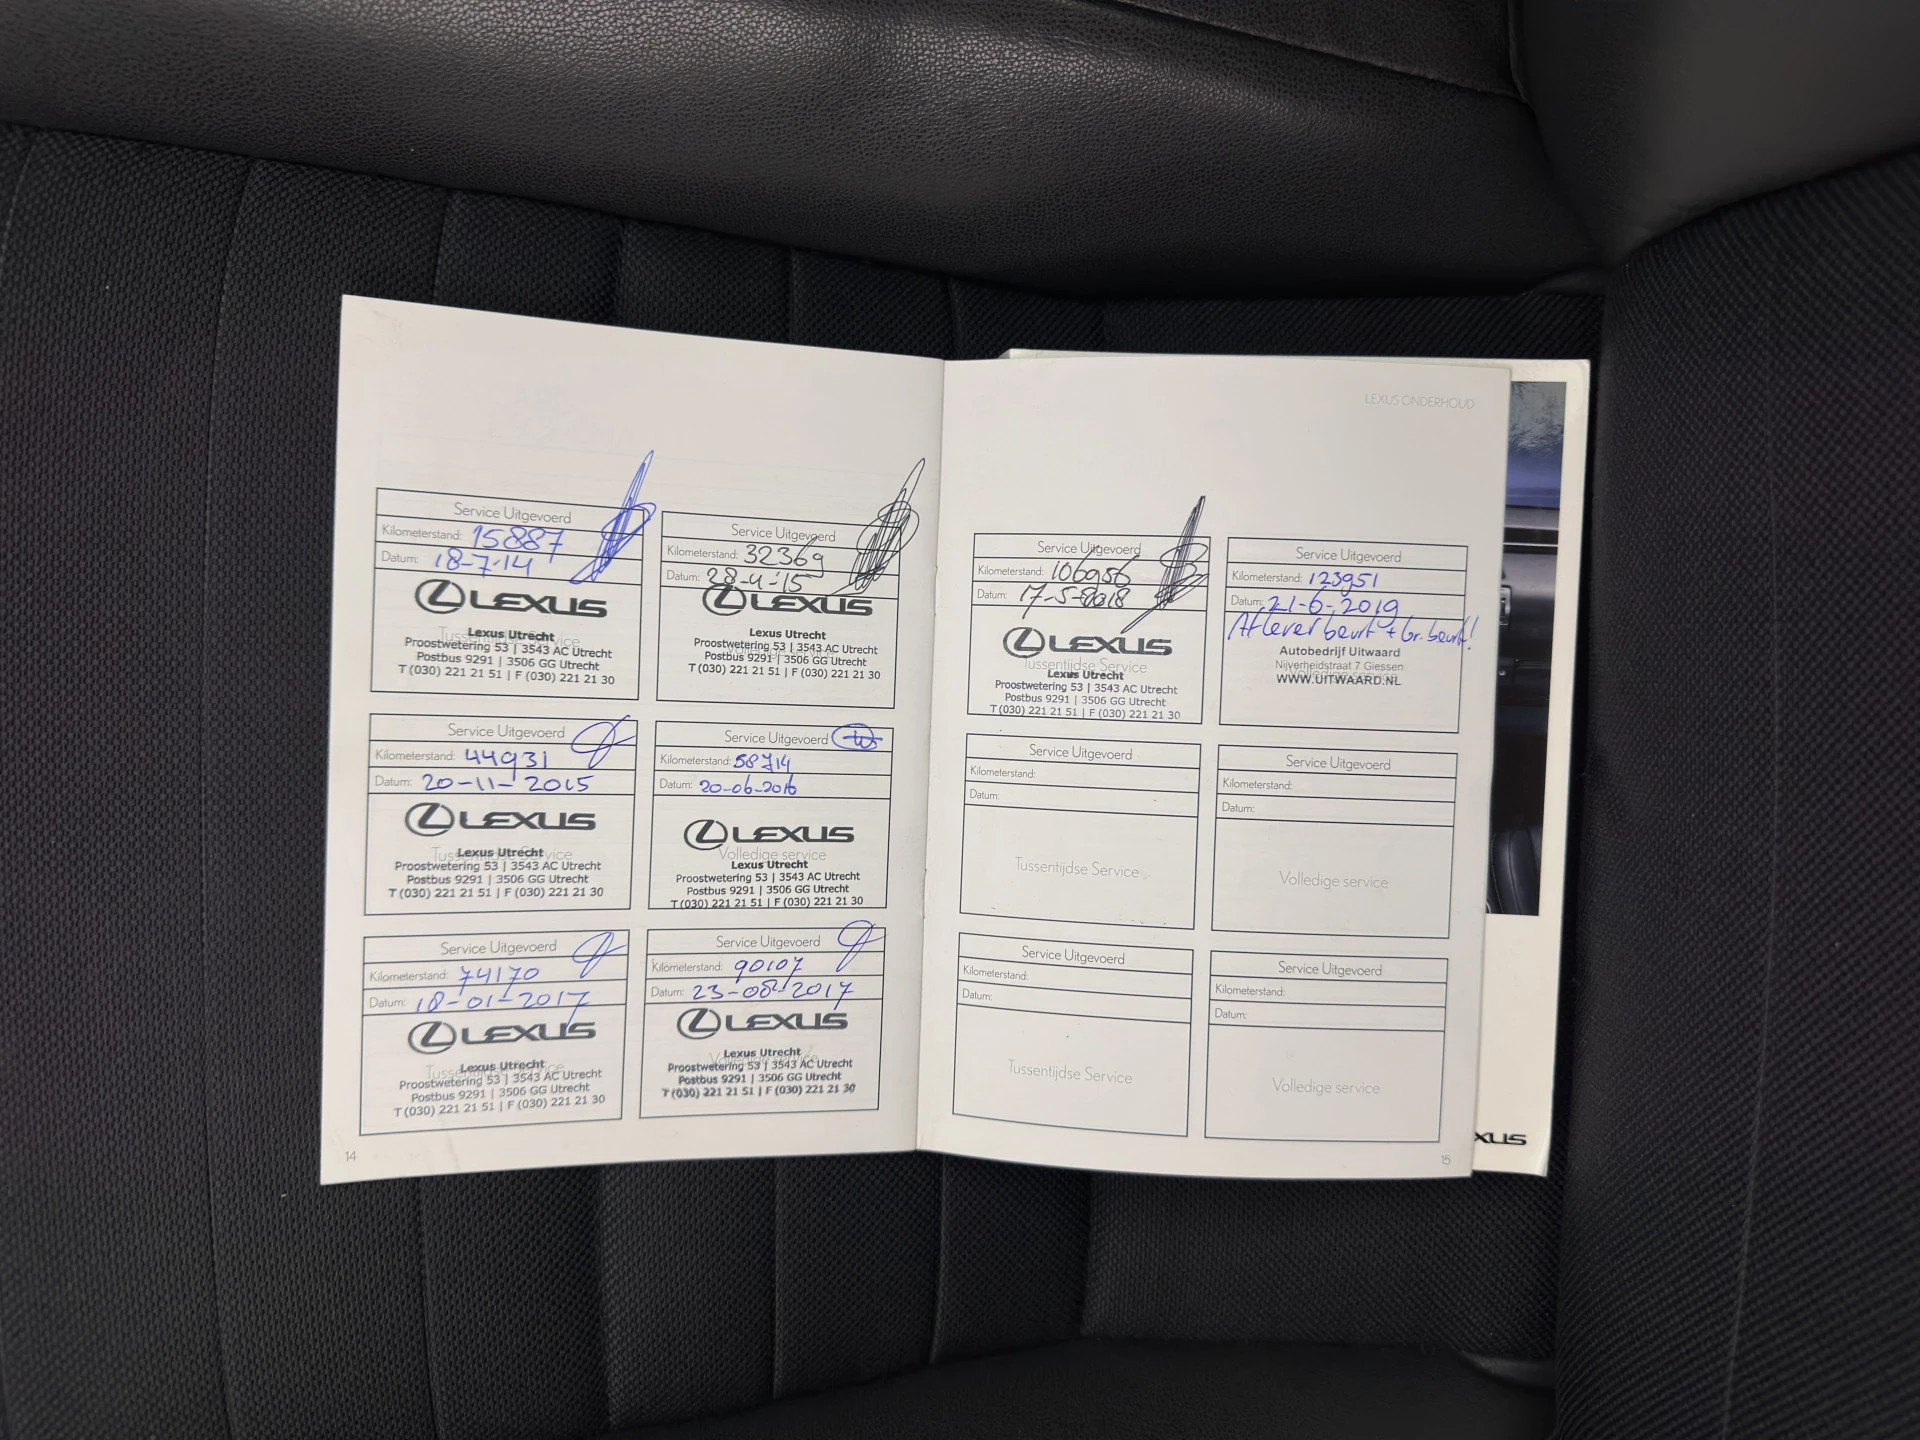 Service Uitgevoerd
Kilometerstand: 15887
Datum: 18-7-14
LEXUS
Tussentijdse Service
Lexus Utrecht
Proostwetering 53 | 3543 AC Utrecht
Postbus 9291 | 3506 GG Utrecht
T (030) 221 21 51 | F (030) 221 21 30
Service Uitgevoerd
Kilometerstand: 32369
Datum: 28-4-'15
LEXUS
Lexus Utrecht
Proostwetering 53 | 3543 AC Utrecht
Postbus 9291 | 3506 GG Utrecht
T (030) 221 21 51 | F (030) 221 21 30
Service Uitgevoerd
Kilometerstand: 44931
Datum: 20-11-2015
LEXUS
Tussentijdse Service
Lexus Utrecht
Proostwetering 53 | 3543 AC Utrecht
Postbus 9291 | 3506 GG Utrecht
T (030) 221 21 51 | F (030) 221 21 30
Service Uitgevoerd
Kilometerstand: 58714
Datum: 20-06-2016
LEXUS
Volledige service
Lexus Utrecht
Proostwetering 53 | 3543 AC Utrecht
Postbus 9291 | 3506 GG Utrecht
T (030) 221 21 51 | F (030) 221 21 30
Service Uitgevoerd
Kilometerstand: 74170
Datum: 18-01-2017
LEXUS
Tussentijdse Service
Lexus Utrecht
Proostwetering 53 | 3543 AC Utrecht
Postbus 9291 | 3506 GG Utrecht
T (030) 221 21 51 | F (030) 221 21 30
Service Uitgevoerd
Kilometerstand: 90107
Datum: 23-08-2017
LEXUS
Volledige service
Lexus Utrecht
Proostwetering 53 | 3543 AC Utrecht
Postbus 9291 | 3506 GG Utrecht
T (030) 221 21 51 | F (030) 221 21 30
14
LEXUS ONDERHOUD
Service Uitgevoerd
Kilometerstand: 106956
Datum: 17-5-2018
LEXUS
Tussentijdse Service
Lexus Utrecht
Proostwetering 53 | 3543 AC Utrecht
Postbus 9291 | 3506 GG Utrecht
T (030) 221 21 51 | F (030) 221 21 30
Service Uitgevoerd
Kilometerstand: 123951
Datum: 21-6-2019
Afleverbeurt + Gr. beurt!
Autobedrijf Uitwaard
Nijverheidstraat 7 Giessen
Volledige service
WWW.UITWAARD.NL
Service Uitgevoerd
Kilometerstand:
Datum:
Tussentijdse Service
Service Uitgevoerd
Kilometerstand:
Datum:
Volledige service
Service Uitgevoerd
Kilometerstand:
Datum:
Tussentijdse Service
Service Uitgevoerd
Kilometerstand:
Datum:
Volledige service
15
XUS